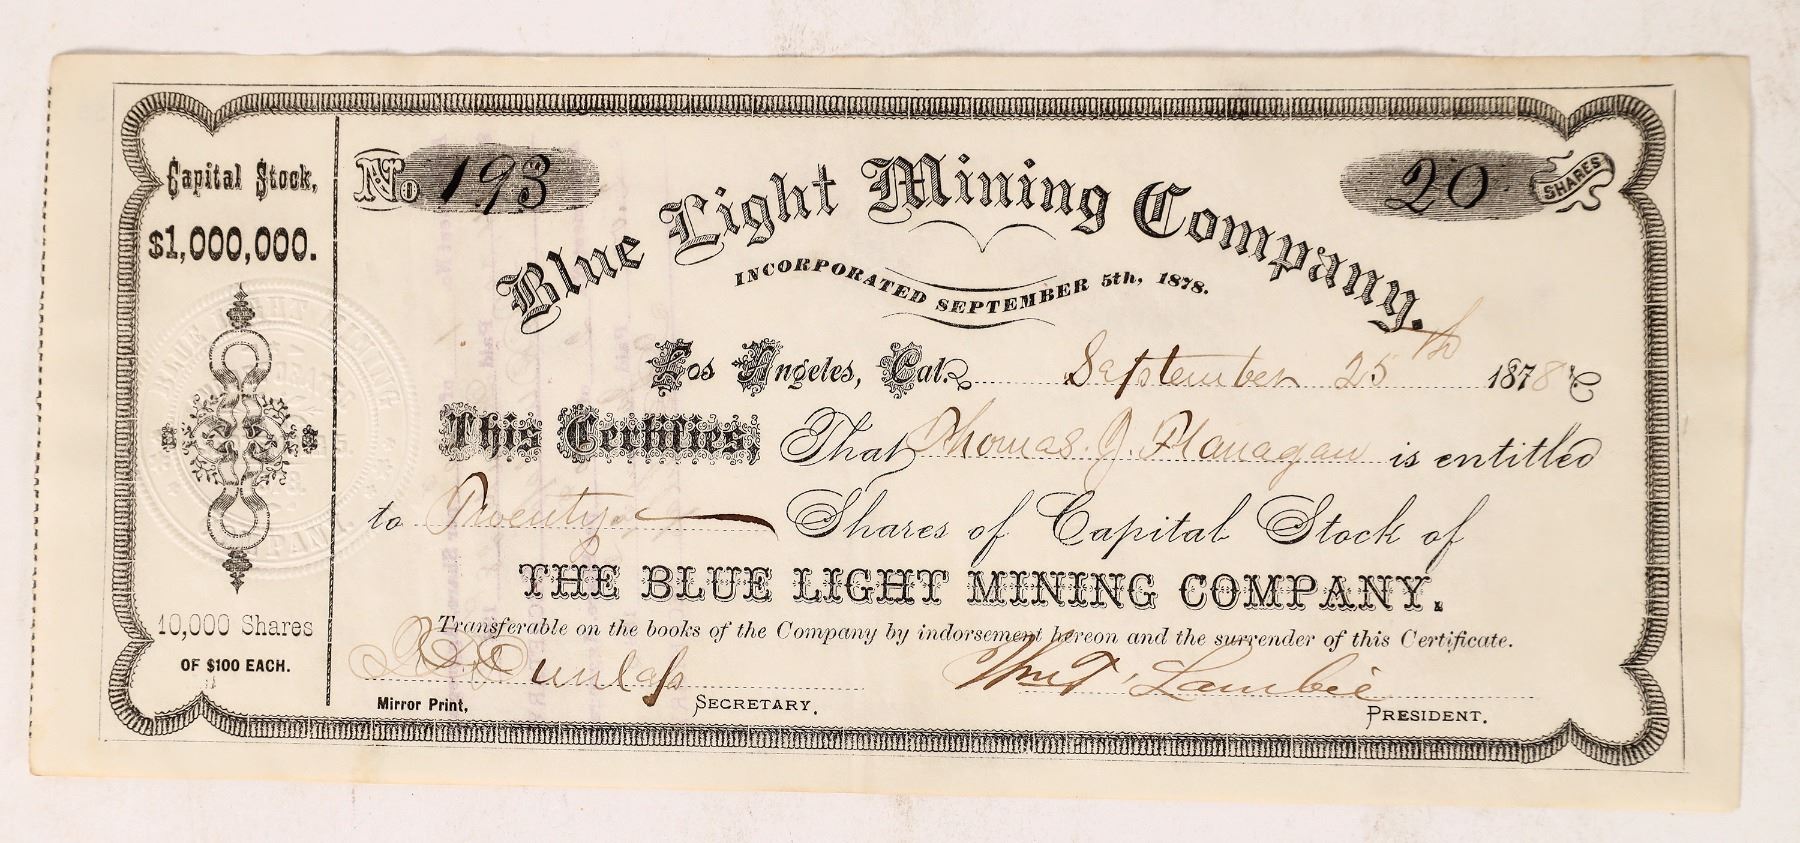 Capital Stock,
$1,000,000.
10,000 Shares
OF $100 EACH.
No 193
20 SHARES
Blue Light Mining Company.
INCORPORATED SEPTEMBER 5th, 1878.
Los Angeles, Cal. September 25th 1878
This Certifies, That Thomas. J. Flanagan is entitled
to Twenty Shares of Capital Stock of
THE BLUE LIGHT MINING COMPANY.
Transferable on the books of the Company by indorsement hereon and the surrender of this Certificate.
Dunlap Wm T. Lambie
Mirror Print, SECRETARY. PRESIDENT.